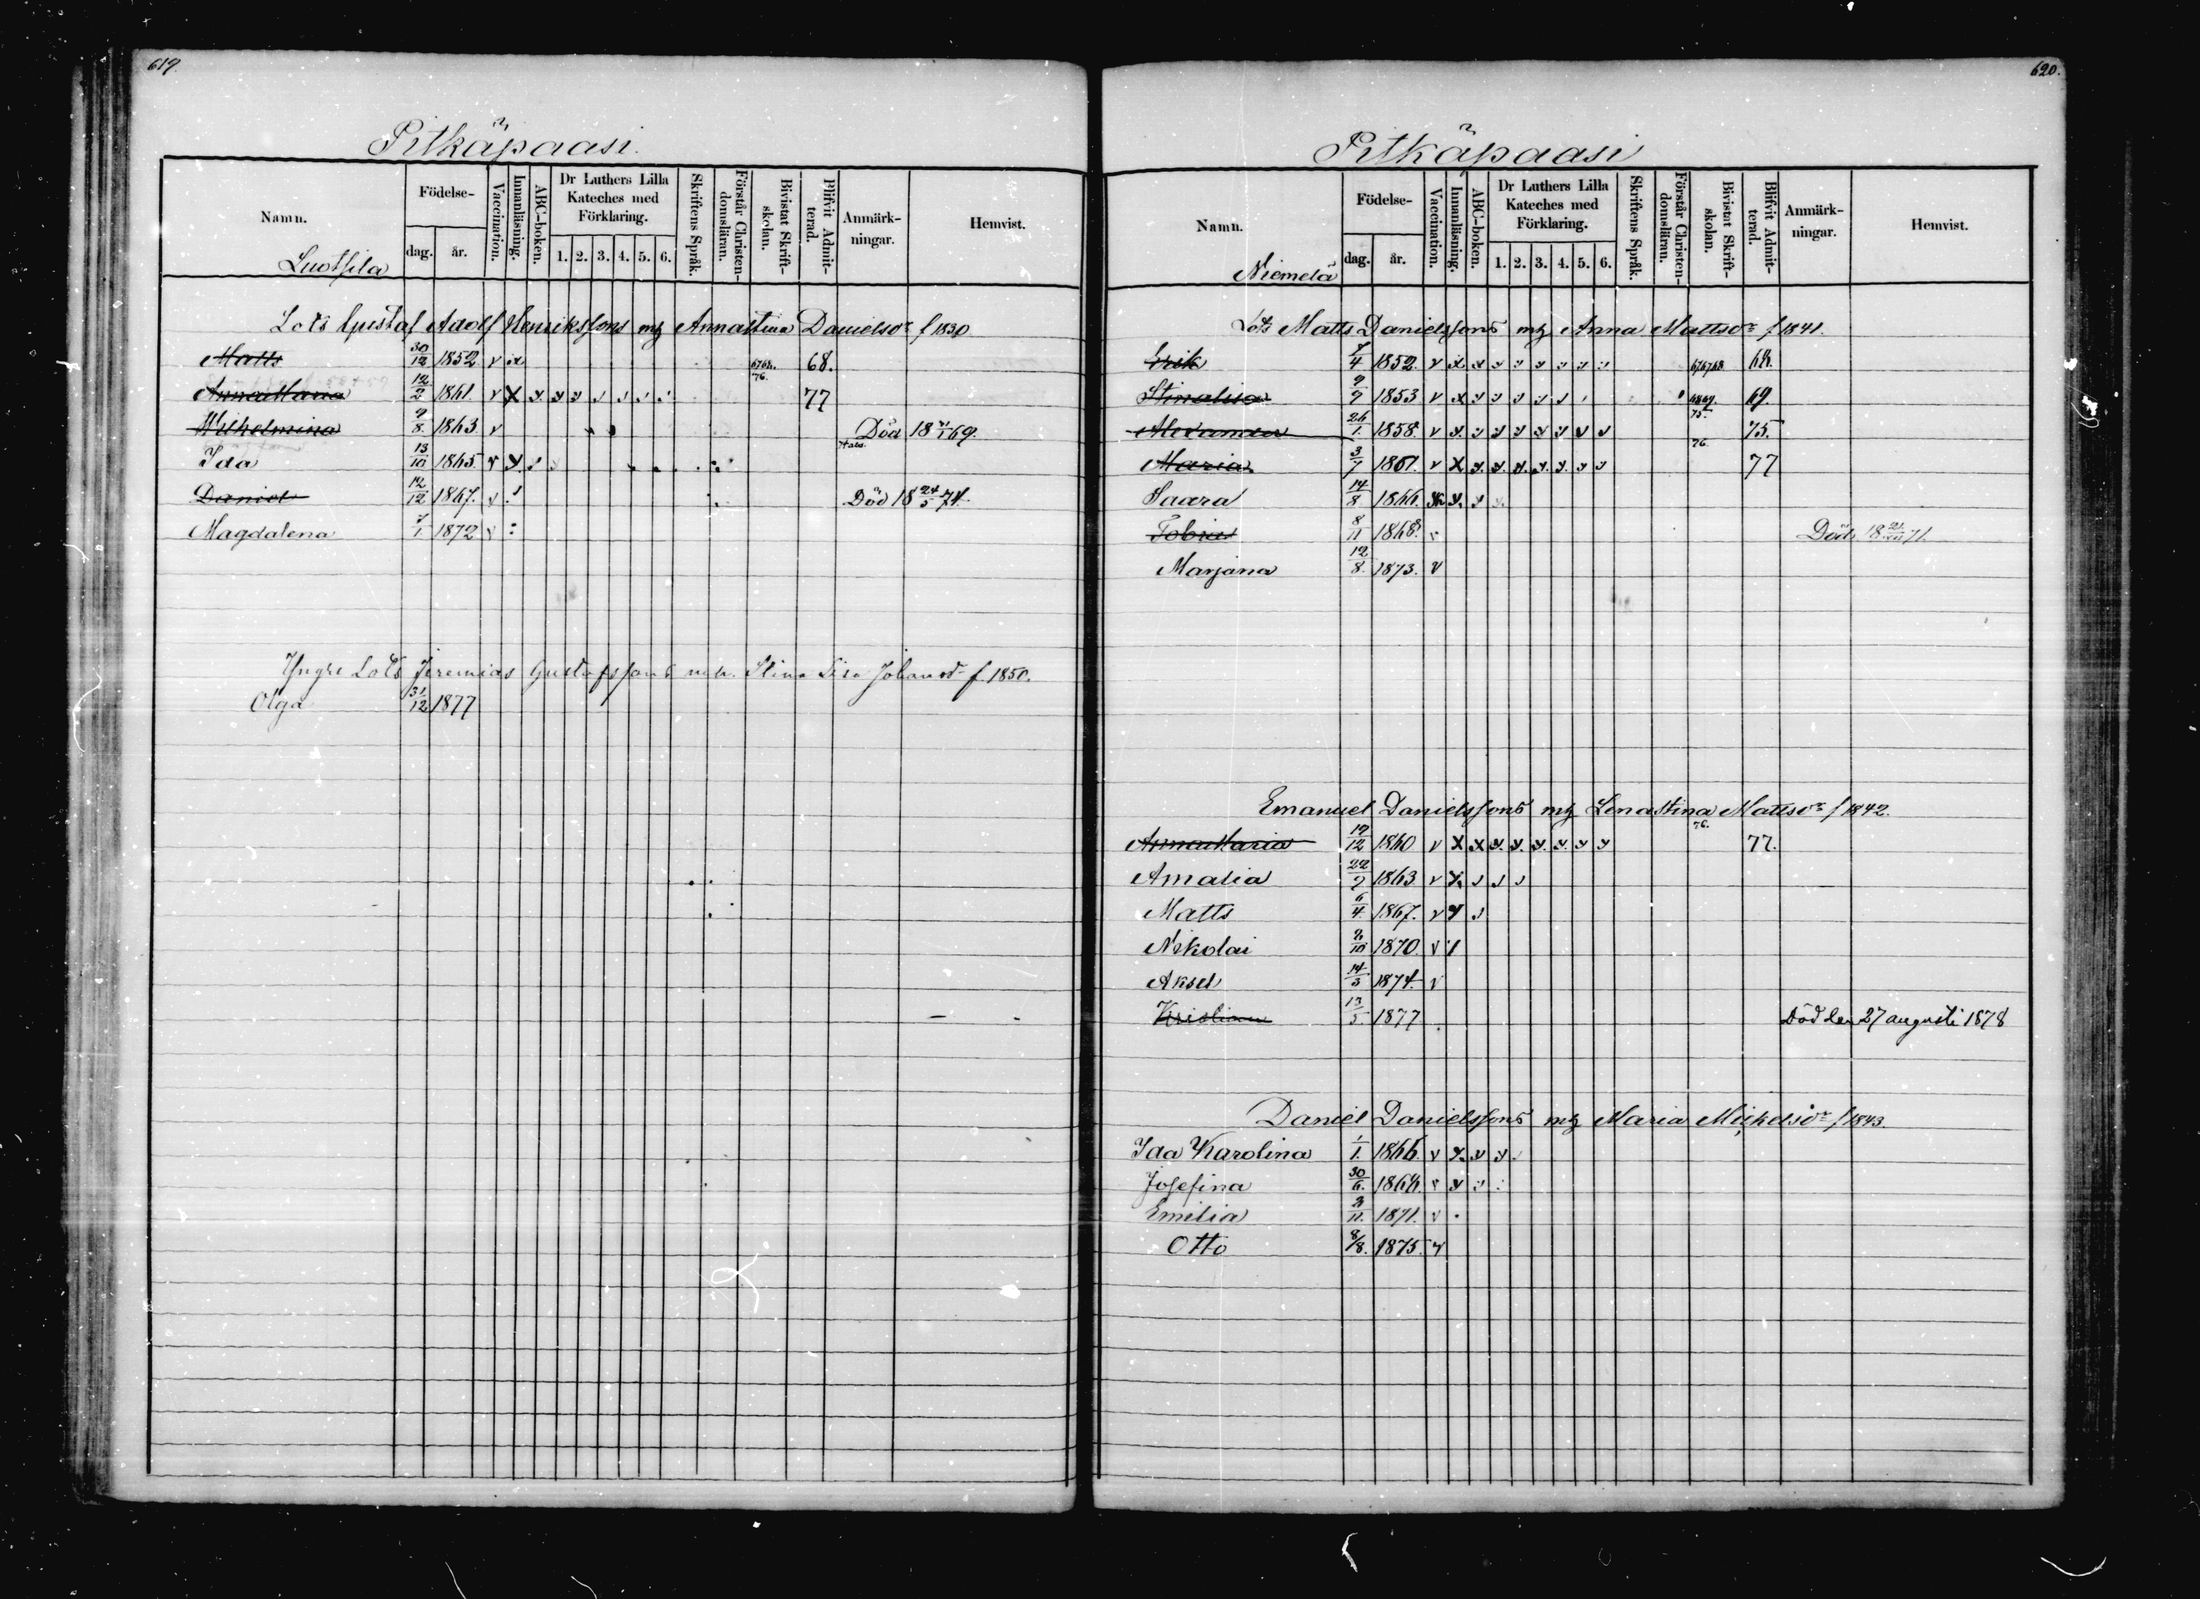 619.
Pitkäpaasi.
Namn. Födelse- dag. år. Vaccination. Innanläsning. ABC-boken. Dr Luthers Lilla Kateches med Förklaring. 1. 2. 3. 4. 5. 6. Skriftens Språk. Förstår Christen-domsläran. Bivistat Skrift-skolan. Blifvit Admit-terad. Anmärk-ningar. Hemvist.
Luotsila
Lots Gustaf Adolf Henrikssons mz Annastina Danielsdr f 1830
Matts 30/12 1852 v x 68.
AnnaMaria 12/2 1861. v x 76. 77
Wilhelmina 9/8 1863 v Död 18 69.
Ida 13/10 1865. v
Daniel 12/12 1867. v Död 18 24/5 74.
Magdalena 7/1 1872 v
Yngre Lots Jeremias Gustafssons Stina Lisa f. 1850.
Olga 31/12 1877
620.
Pitkäpaasi
Namn. Födelse- dag. år. Vaccination. Innanläsning. ABC-boken. Dr Luthers Lilla Kateches med Förklaring. 1. 2. 3. 4. 5. 6. Skriftens Språk. Förstår Christen-domsläran. Bivistat Skrift-skolan. Blifvit Admit-terad. Anmärk-ningar. Hemvist.
Niemelä
Lots Matts Danielssons mz Anna Mattsdr f 1841.
Erik 1852. v x 676768 68.
Stinalisa 1853 v x 6869. 69.
26/1. 1858. v 75. 75.
Maria 3/7 1861. v x 76 77
Saara 14/8 1866.
Tobias 8/11 1868. v Död 18 71.
Marjana 12/8. 1873. v
Emanuel Danielssons mz Lenastina Mattsdr f 1842.
AnnaMaria 19/12 1860 v x 76. 77.
Amalia 22/9 1863 v
Matts 6/4. 1867. v
Nikolai 1870. v
Aksel 14/3 1874. v
Kristian 13/5. 1877 Död den 27 augusti 1878
Daniel Danielssons mz Maria Mickelsdr f 1843.
Ida Karolina 1/1. 1866. v
Josefina 30/6. 1868. v
Emilia 1871. v
Otto 8/8. 1875. v